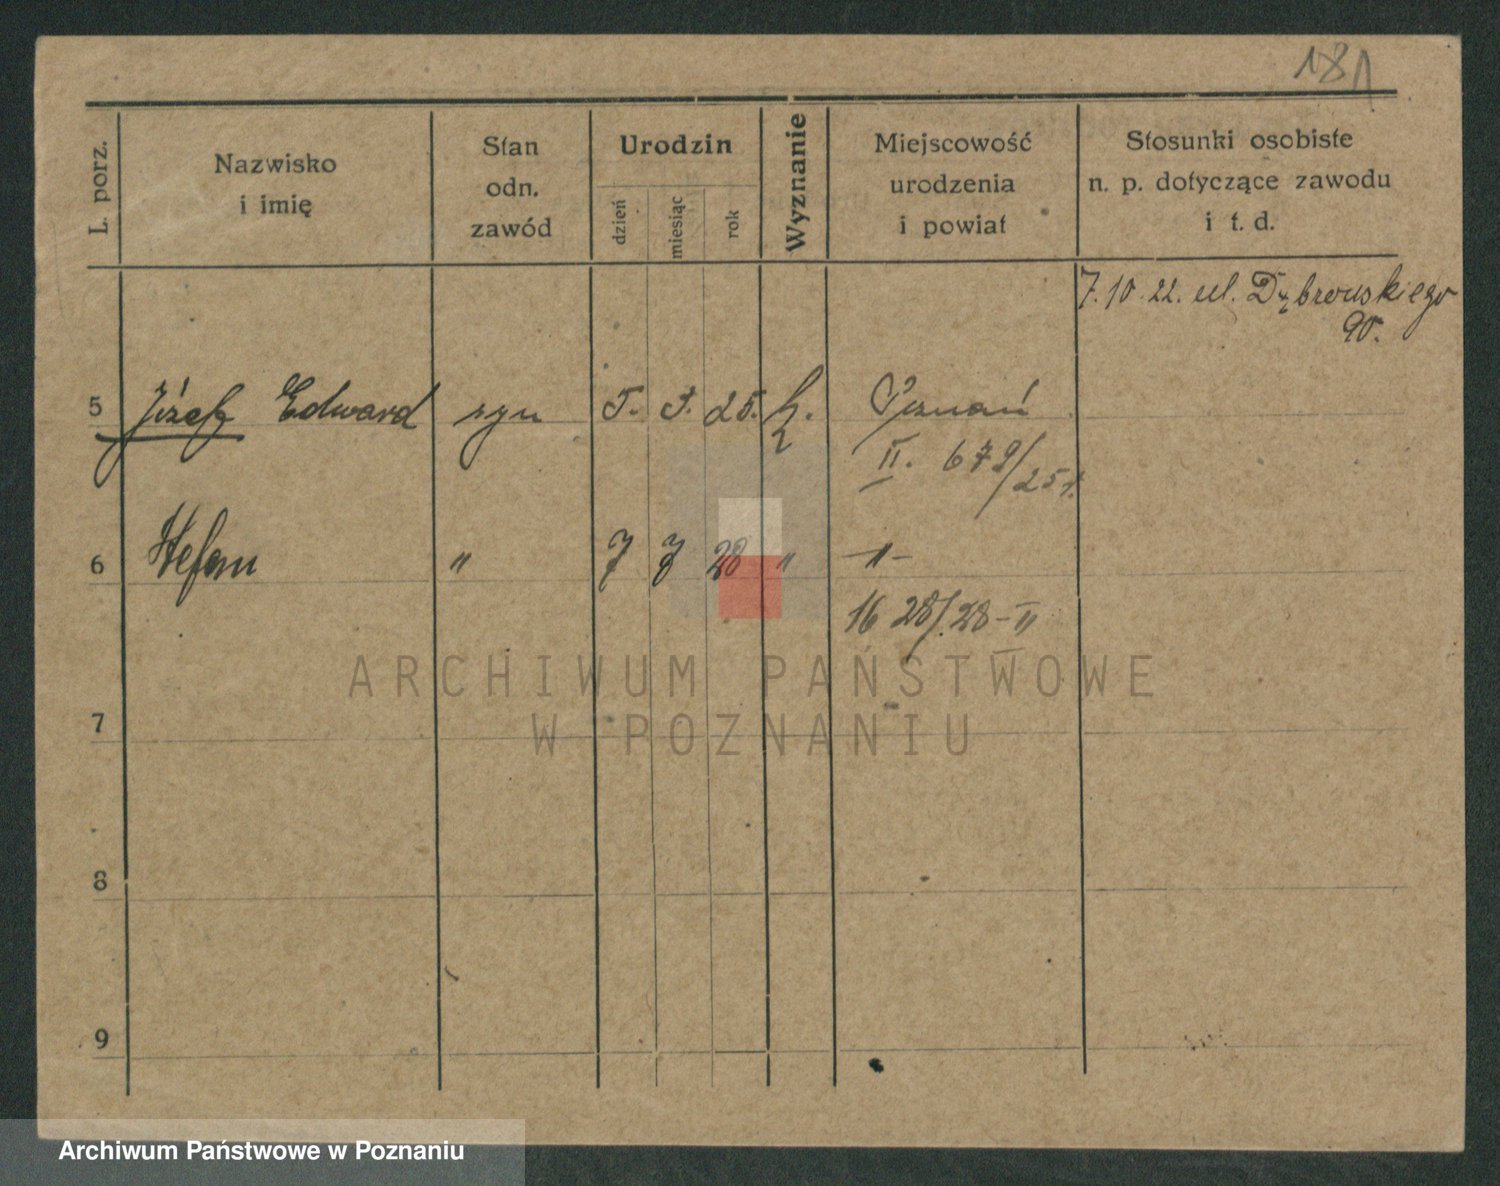 181
L. porz.
Nazwisko
i imię
Stan
odn.
zawód
Urodzin
dzień
miesiąc
rok
Wyznanie
Miejscowość
urodzenia
i powiat
Stosunki osobiste
n. p. dotyczące zawodu
i t. d.
7. 10. 22. ul. Dąbrowskiego
90.
5 Józef Edward syn 5. 3. 25. k. Poznań
II. 679/25
6 Stefan " 7 28 " -"-
16 28/28-II
7
8
9
ARCHIWUM PAŃSTWOWE
W POZNANIU
Archiwum Państwowe w Poznaniu